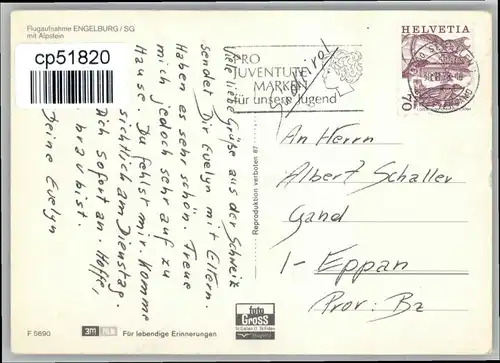 Flugaufnahme ENGELBURG / SG
mit Alpstein
cp51820
Viele liebe Grüße aus der Schweiz
sendet Dir Evelyn mit Eltern.
Haben es sehr schön. Freue
mich jedoch sehr auf zu
Hause. Du fehlst mir. Komme
sichtlich am Dienstag.
Dich sofort an. Hoffe,
brav bist.
Deine Evelyn
PRO
JUVENTUTE
MARKEN
für unsere Jugend
HELVETIA
70
An Herrn
Albert Schaller
Gand
I-Eppan
Prov. Bz
Reproduktion verboten
foto
GROSS
F 5690
3M
Für lebendige Erinnerungen